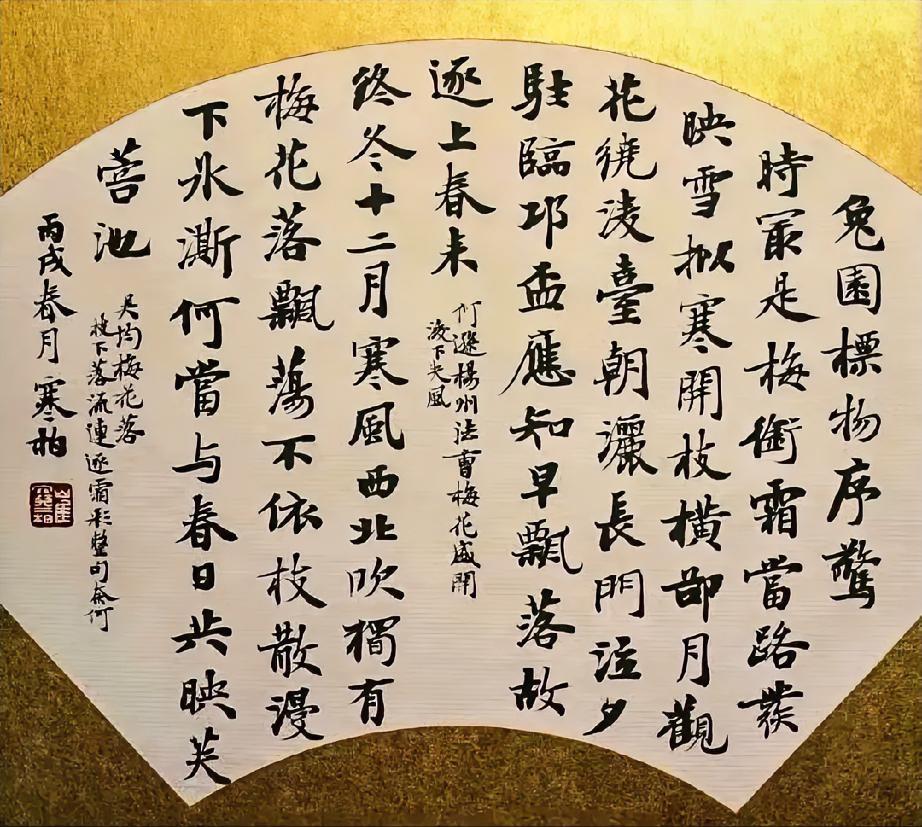 兔園標物序驚
時冣是梅銜霜當路發
映雪拟寒開枝橫卻月觀
花繞淩臺朝灑長門泣夕
駐臨邛盃應知早飄落故
逐上春来
何遜楊州法曹梅花盛開
淩下失風
終冬十二月寒風西北吹獨有
梅花落飄蕩不依枝散漫
下氷澌何當与春日共映芙
蓉池
吳均梅花落
枝下落流連逐霜彩整句奈何
丙戌春月寒柏
崔寒柏